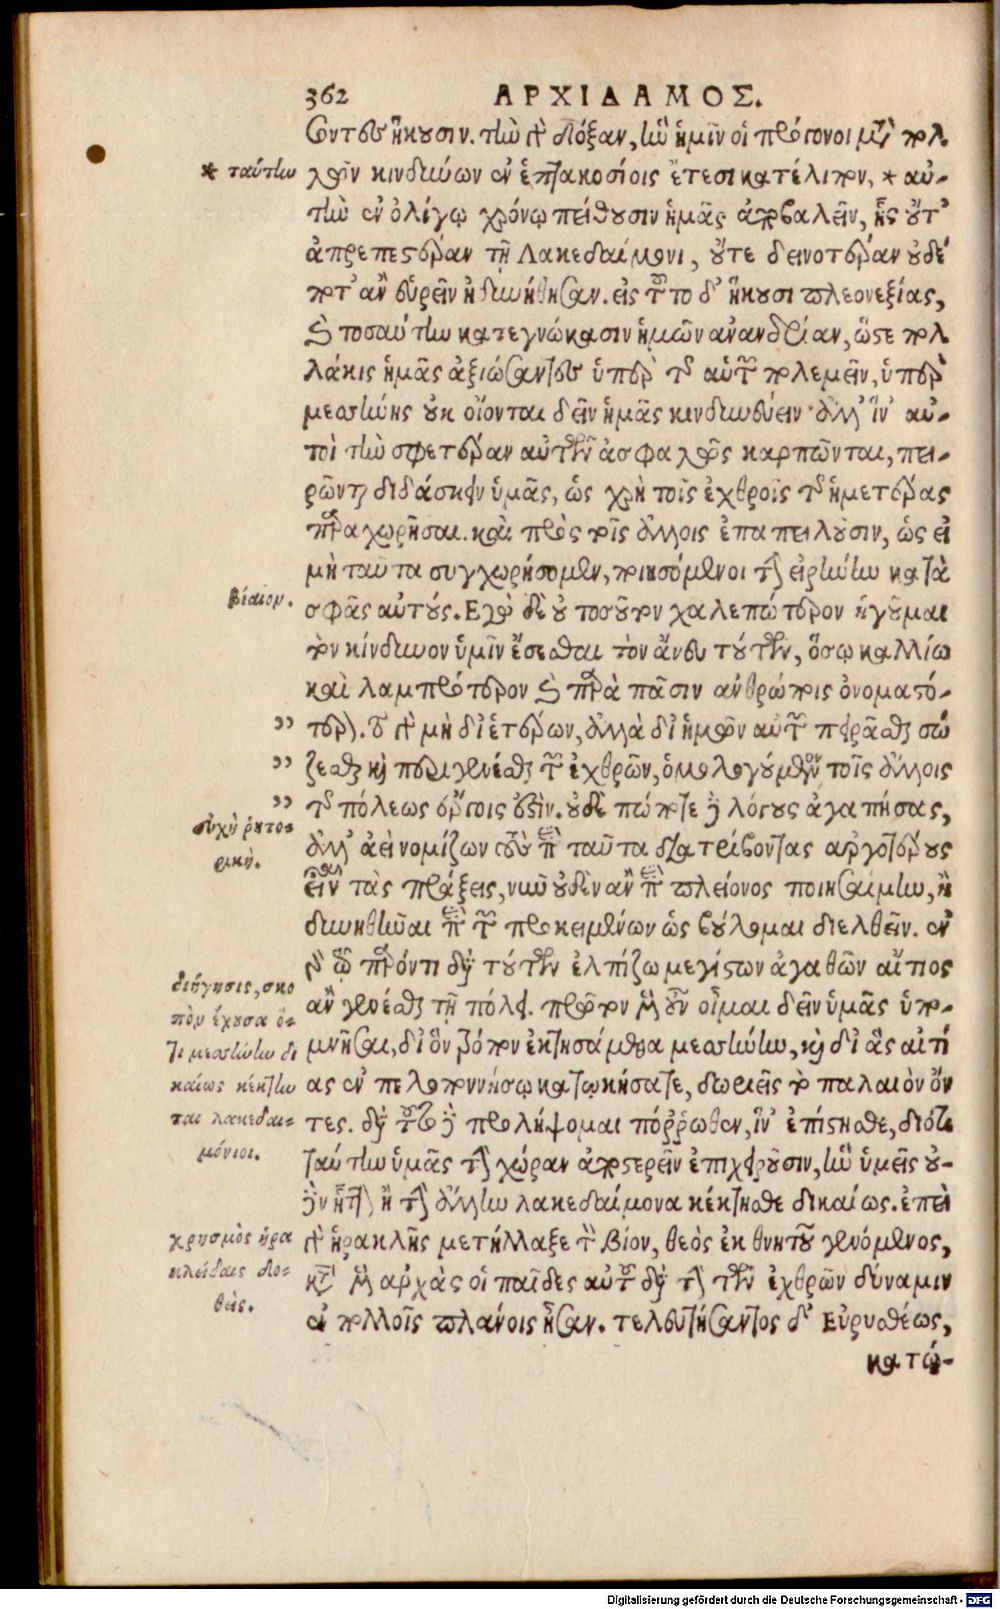 362 ΑΡΧΙΔΑΜΟΣ.
σοντες ἥκουσιν. τὴν γὰρ δόξαν, ἣν ἡμῖν οἱ πρόγονοι μετὰ πολ
* ταύτην
λῶν κινδύνων ἐν ἑπτακοσίοις ἔτεσι κατέλιπον, * αὐ-
τὴν ἐν ὀλίγῳ χρόνῳ πείθουσιν ἡμᾶς ἀποβαλεῖν, ἧς οὔτ'
ἀπρεπεστέραν τῇ Λακεδαίμονι, οὔτε δεινοτέραν οὐδέ
ποτ' ἂν εὑρεῖν ἠδυνήθησαν. εἰς τοῦτο δ' ἥκουσι πλεονεξίας,
καὶ τοσαύτην κατεγνώκασιν ἡμῶν ἀνανδρίαν, ὥστε πολ
λάκις ἡμᾶς ἀξιώσαντες ὑπὲρ τῆς αὑτῶν πολεμεῖν, ὑπὲρ
μεσήνης οὐκ οἴονται δεῖν ἡμᾶς κινδυνεύειν· ἀλλ' ἵν' αὐ-
τοὶ τὴν σφετέραν αὐτῶν ἀσφαλῶς καρπῶνται, πει-
ρῶνται διδάσκειν ὑμᾶς, ὡς χρὴ τοῖς ἐχθροῖς τῆς ἡμετέρας
παραχωρῆσαι. καὶ πρὸς τοῖς ἄλλοις ἐπαπειλοῦσιν, ὡς εἰ
μὴ ταῦτα συγχωρήσομεν, ποιησόμενοι τὴν εἰρήνην κατὰ
βίαιον.
σφᾶς αὐτούς. Ἐγὼ δὲ οὐ τοσοῦτον χαλεπώτερον ἡγοῦμαι
τὸν κίνδυνον ὑμῖν ἔσεσθαι τὸν ἄνευ τούτων, ὅσῳ καλλίω
καὶ λαμπρότερον καὶ παρὰ πᾶσιν ἀνθρώποις ὀνομαστό-
” τερον. τὸ γὰρ μὴ δι' ἑτέρων, ἀλλὰ δι' ἡμῶν αὐτῶν πειρᾶσθαι σώ
” ζεσθαι καὶ περιγενέσθαι τῶν ἐχθρῶν, ὁμολογούμενον τοῖς ἄλλοις
” τῆς πόλεως ἔργοις ἐστίν. οὐδὲ πώποτε δὲ λόγους ἀγαπήσας,
εὐχὴ ῥητο-
ρική.
ἀλλ' ἀεὶ νομίζων τοὺς περὶ ταῦτα διατρίβοντας ἀργοτέρους
εἶναι τὰς πράξεις, νῦν οὐδὲν ἂν περὶ πλείονος ποιησαίμην, ἢ
δυνηθῆναι περὶ τῶν προκειμένων ὡς βούλομαι διελθεῖν. ἐν
τῷ παρόντι διὰ τούτων ἐλπίζω μεγίστων ἀγαθῶν αἴτιος
διήγησις, σκο
πὸν ἔχουσα ὅ-
τι μεσήνην δι
καίως κέκτην
ται λακεδαι-
μόνιοι.
ἂν γενέσθαι τῇ πόλει. πρῶτον μὲν οὖν οἶμαι δεῖν ὑμᾶς ὑπο-
μνῆσαι, δι' ὃν τρόπον ἐκτησάμεθα μεσήνην, καὶ δι' ἃς αἰτί
ας ἐν πελοποννήσῳ κατῳκήσατε, δωριεῖς τὸ παλαιὸν ὄν
τες. διὰ τοῦτο δὲ προλήψομαι πόῤῥωθεν, ἵν' ἐπίστησθε, διότι
ταύτην ὑμᾶς τὴν χώραν ἀποστερεῖν ἐπιχειροῦσιν, ἣν ὑμεῖς οὐ-
δὲν ἧττον ἢ τὴν ἄλλην λακεδαίμονα κέκτησθε δικαίως. ἐπεὶ
χρησμὸς ἡρα
κλείδαις δο-
θείς.
γὰρ ἡρακλῆς μετήλλαξε τὸν βίον, θεὸς ἐκ θνητοῦ γενόμενος,
κατὰ μὲν ἀρχὰς οἱ παῖδες αὐτοῦ διὰ τὴν τῶν ἐχθρῶν δύναμιν
ἐν πολλοῖς πλάνοις ἦσαν. τελευτήσαντος δ' Εὐρυσθέως,
κατῴ-
Digitalisierung gefördert durch die Deutsche Forschungsgemeinschaft - DFG